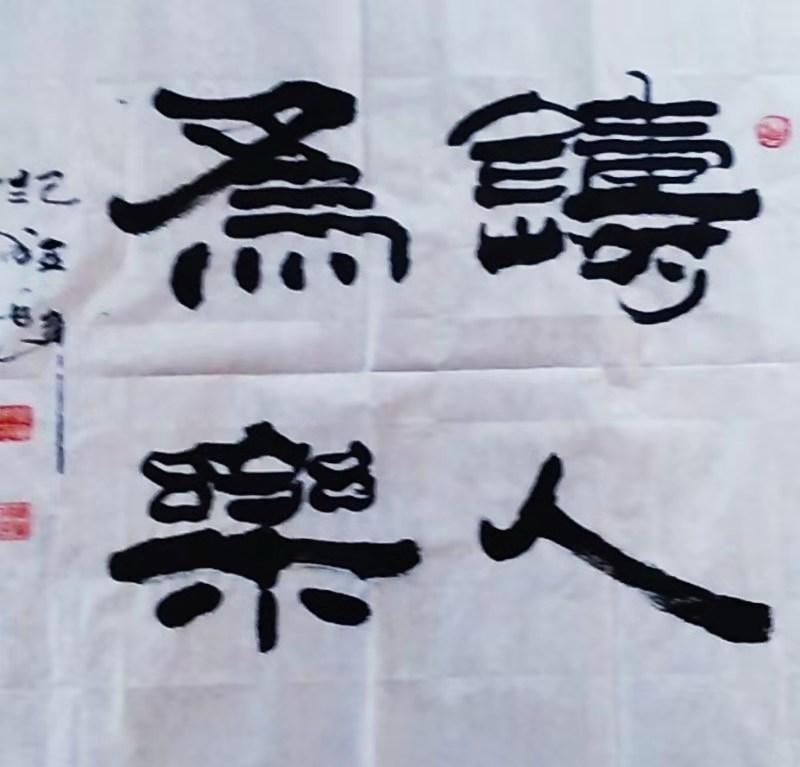 鑄人
為樂